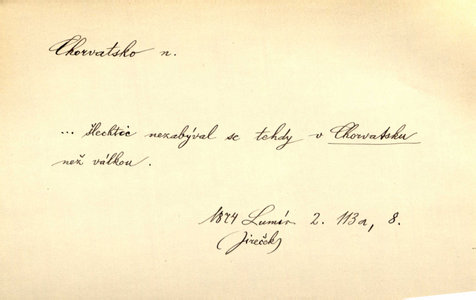 Chorvatsko n.
... šlechtic nezabýval se tehdy v Chorvatsku
než válkou.
1874 Lumír 2. 113a, 8.
(Jireček)